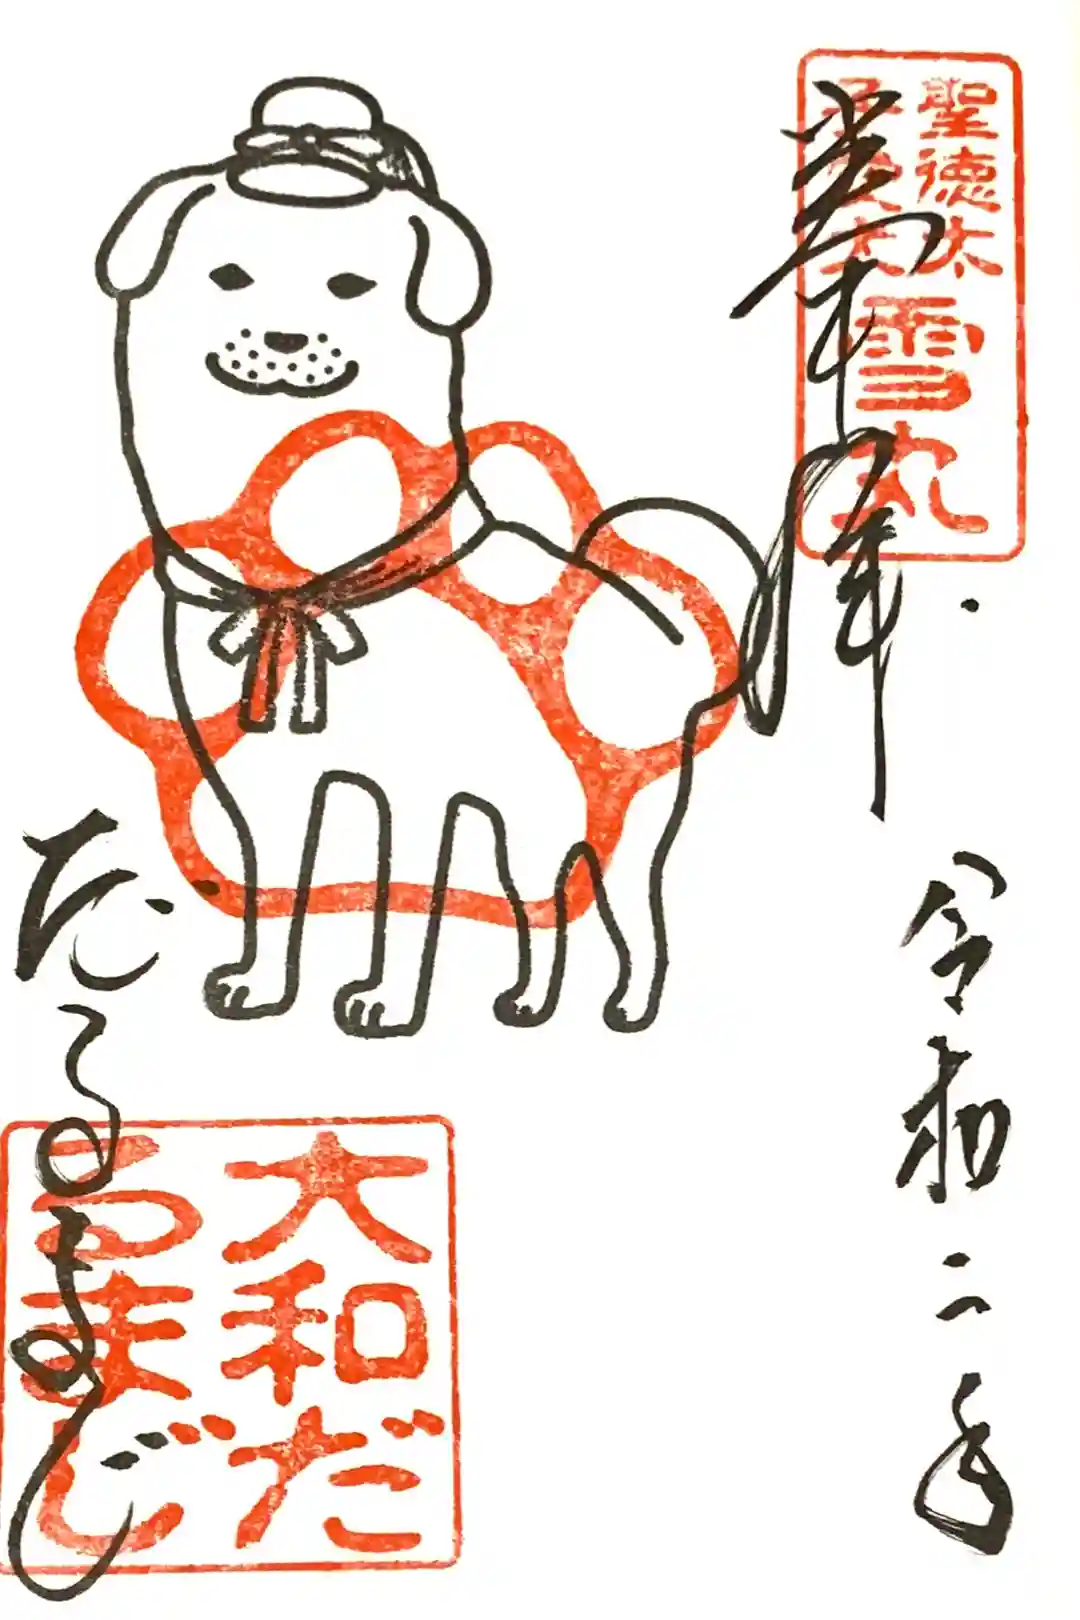 奉拝
聖徳太
子愛犬
雪丸
令和二年
だるまじ
大和だ
るまじ